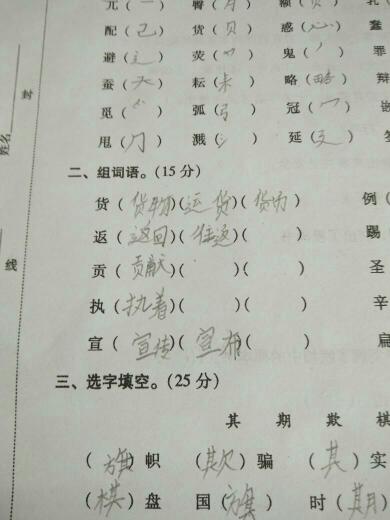 兀(一) 臀(月) 额(页) 乳(
配(己) 货(贝) 惑(心) 蠢
避(辶) 荧(艹) 鬼(丿) 罪
蚕(天) 耘(耒) 略(略) 辩
觅(爫) 弧(弓) 冠(冖)
甩(冂) 溅(氵) 延(廴)
二、组词语。(15分)
货(货物)(运货)( ) 例
返(返回)(往返)( ) 踢
贡(贡献)( )( ) 圣
执(执着)( )( ) 辛
宣(宣传)(宣布)( ) 扁
三、选字填空。(25分)
其 期 欺 棋
(旗)帜 (欺)骗 (其)实
(棋)盘 国(旗) 时(期)
姓名
封
线